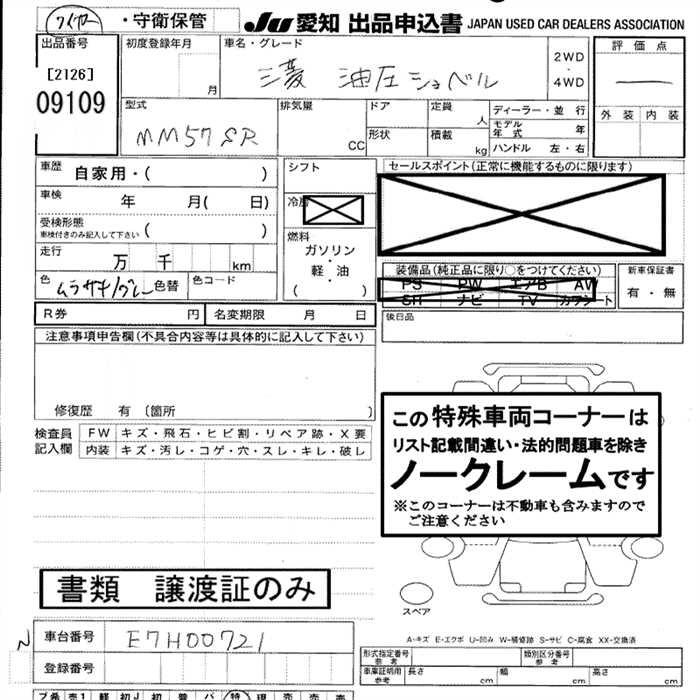 ・守衛保管
JU 愛知 出品申込書 JAPAN USED CAR DEALERS ASSOCIATION
出品番号
[2126]
09109
初度登録年月
月
車名・グレード
三菱 油圧ショベル
2WD
・
4WD
評価点
外装 内装
型式
MM57SR
排気量
CC
ドア
形状
定員
人
積載
kg
ディーラー・並行
モデル年式 年
ハンドル 左・右
車歴 自家用・( )
車検 年 月( 日)
受検形態
車検付きのみ記入して下さい ( )
走行 万 千 km
色 ムラサキ/グレー 色替 色コード
シフト
冷房
燃料
ガソリン
・
軽・油
( )
セールスポイント(正常に機能するものに限ります)
装備品(純正品に限り○をつけてください)
PS PW エアB AW
SR ナビ TV カワシート
新車保証書
有・無
R券 円 名変期限 月 日
後日品
注意事項申告欄(不具合内容等は具体的に記入して下さい)
修復歴 有 〔箇所 〕
検査員記入欄
FW キズ・飛石・ヒビ割・リペア跡・X要
内装 キズ・汚レ・コゲ・穴・スレ・キレ・破レ
この特殊車両コーナーは
リスト記載間違い・法的問題車を除き
ノークレームです
※このコーナーは不動車も含みますので
ご注意ください
書類 譲渡証のみ
スペア
A-キズ E-エクボ U-凹み W-補修跡 S-サビ C-腐食 XX-交換済
車台番号 E7H00721
登録番号
形式指定番号
参考
類別区分番号
参考
車庫証明用
参考
長さ cm 幅 cm 高さ cm